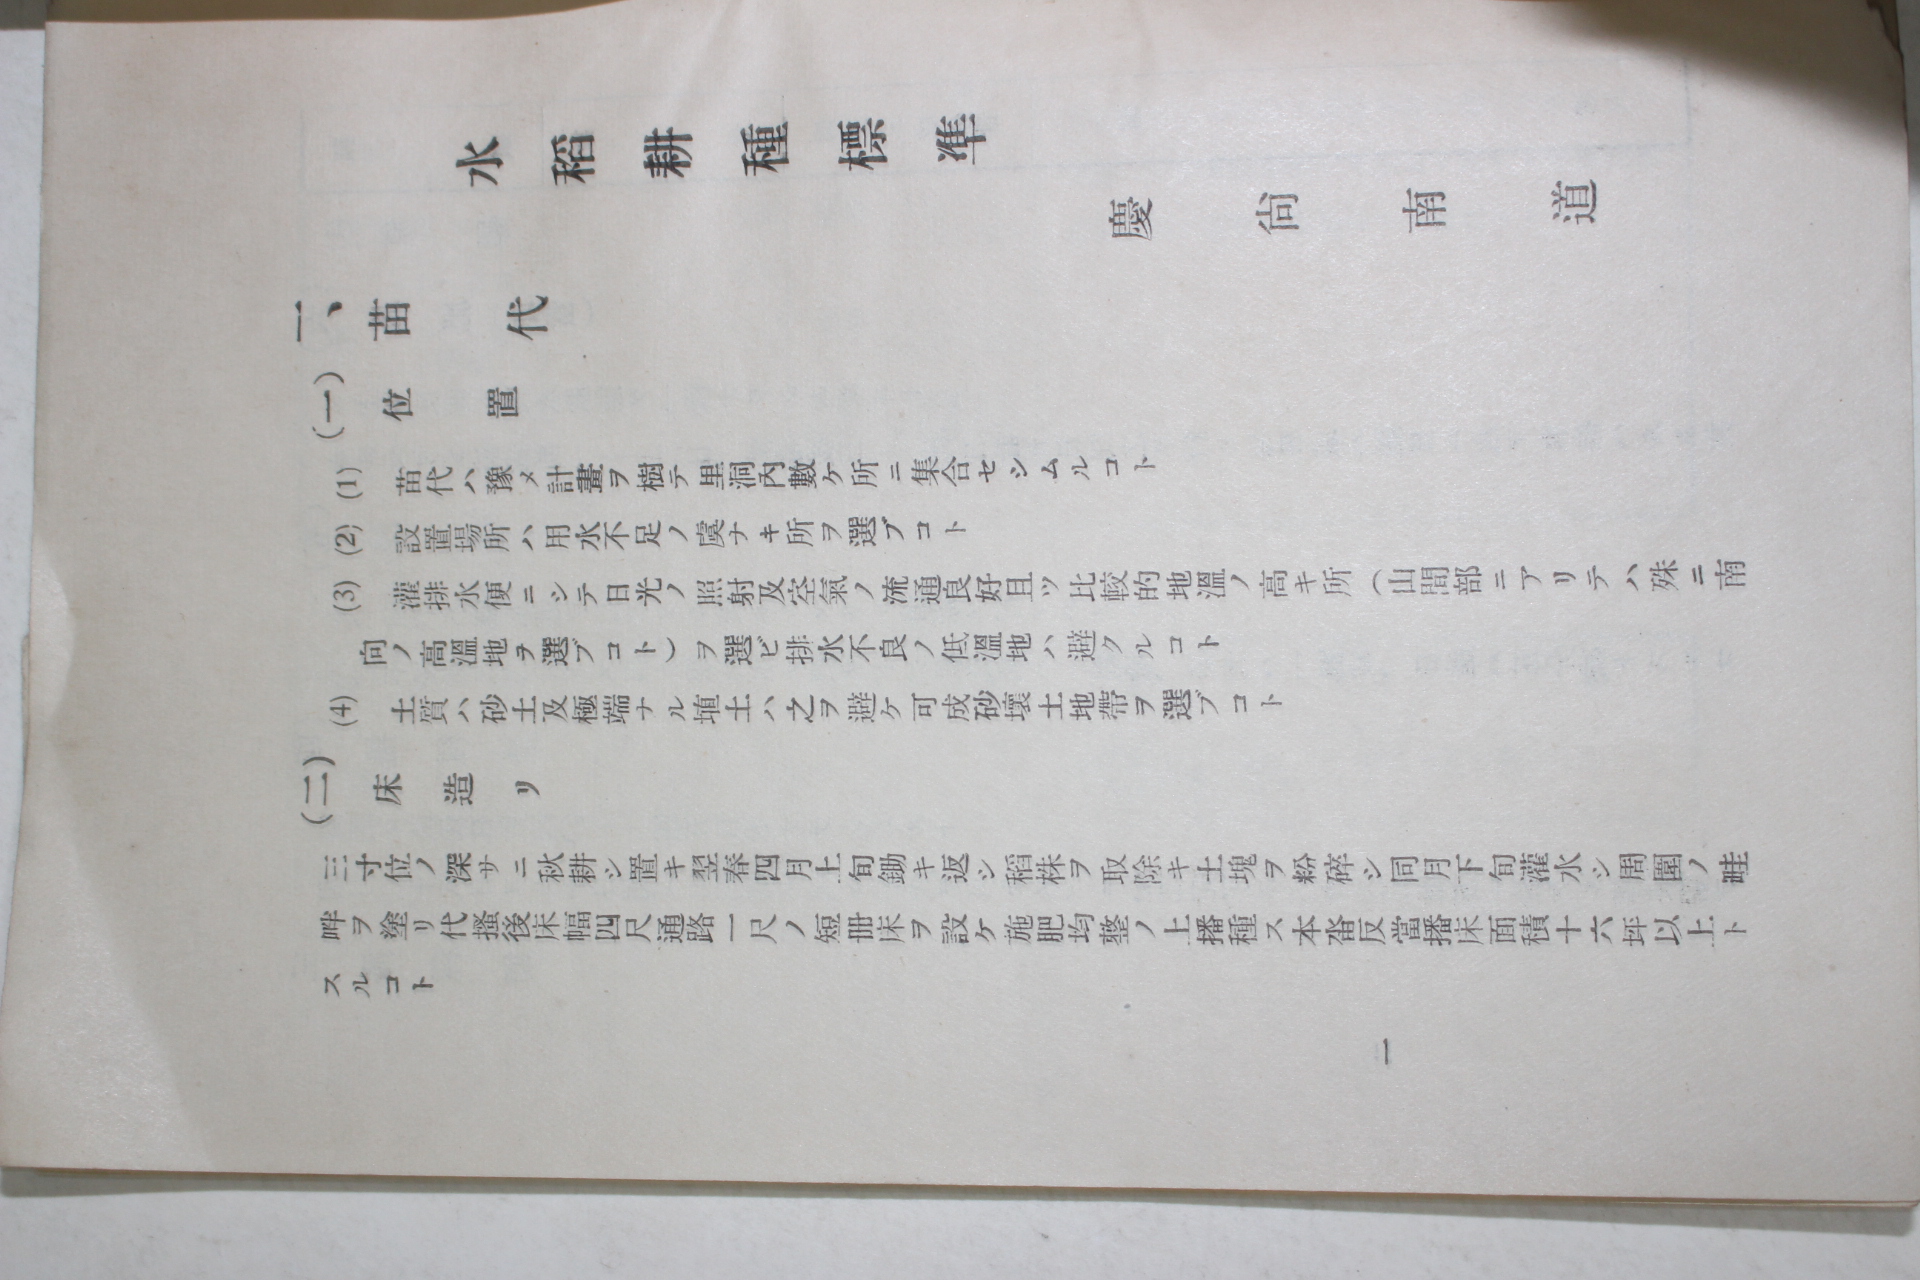 水稻耕種標準
慶尙南道
一、苗代
(一) 位置
(1) 苗代ハ豫メ計畫ヲ樹テ里洞內數ケ所ニ集合セシムルコト
(2) 設置場所ハ用水不足ノ虞ナキ所ヲ選ブコト
(3) 灌排水便ニシテ日光ノ照射及空氣ノ流通良好且ツ比較的地溫ノ高キ所(山間部ニアリテハ殊ニ南
向ノ高溫地ヲ選ブコト)ヲ選ビ排水不良ノ低溫地ハ避クルコト
(4) 土質ハ砂土及極端ナル埴土ハ之ヲ避ケ可成砂壤土地帶ヲ選ブコト
(二) 床造リ
三寸位ノ深サニ秋耕シ置キ翌春四月上旬鋤キ返シ稻株ヲ取除キ土塊ヲ粉碎シ同月下旬灌水シ周圍ノ畦
畔ヲ塗リ代搔後床幅四尺通路一尺ノ短冊床ヲ設ケ施肥均整ノ上播種ス本畓反當播床面積十六坪以上ト
スルコト
一